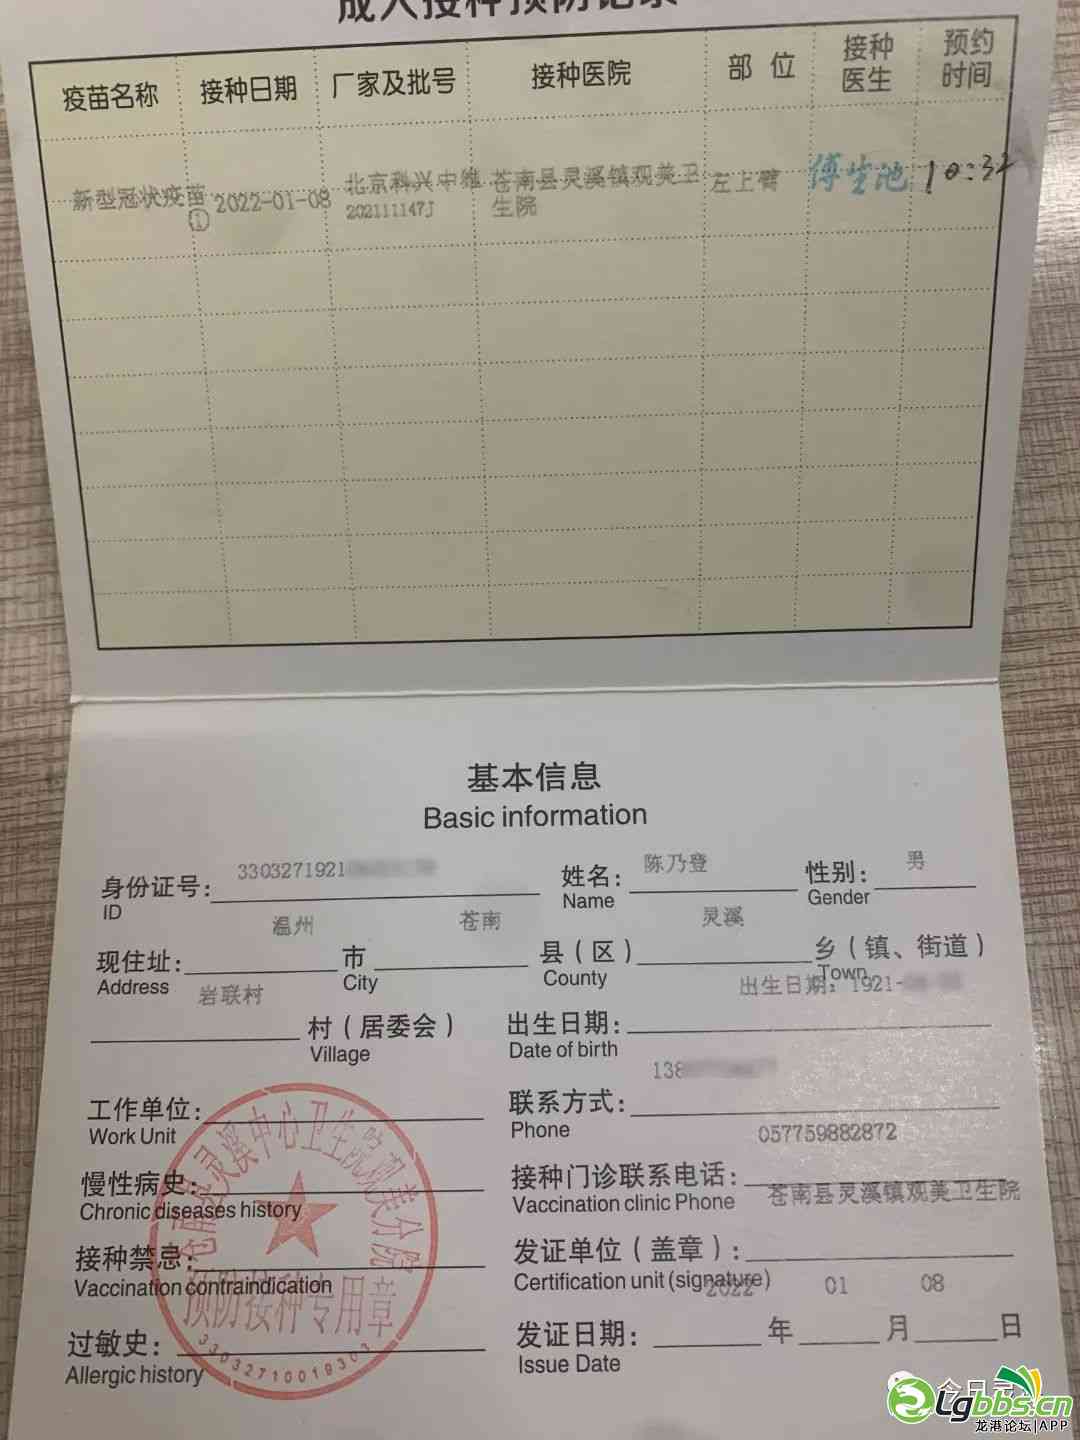 成人接种预防记录
疫苗名称 接种日期 厂家及批号 接种医院 部位 接种医生 预约时间
新型冠状疫苗① 2022-01-08 北京科兴中维 202111147J 苍南县灵溪镇观美卫生院 左上臂 10:32
基本信息
Basic information
身份证号: 3303271921 姓名: 陈乃登 性别: 男
ID Name Gender
现住址: 温州 市 苍南 县(区) 灵溪 乡(镇、街道)
Address City County Town
岩联村 村(居委会) 出生日期: 出生日期: 1921-
Village Date of birth
工作单位: 联系方式: 138
Work Unit Phone
慢性病史: 接种门诊联系电话: 057759882872
Chronic diseases history Vaccination clinic Phone
接种禁忌: 发证单位(盖章): 苍南县灵溪镇观美卫生院
Vaccination contraindication Certification unit (signature)
过敏史: 发证日期: 2022 年 01 月 08 日
Allergic history Issue Date
苍南县灵溪中心卫生院观美分院
预防接种专用章
33032710019303
今日灵
Lgbbs.cn
龙港论坛|APP